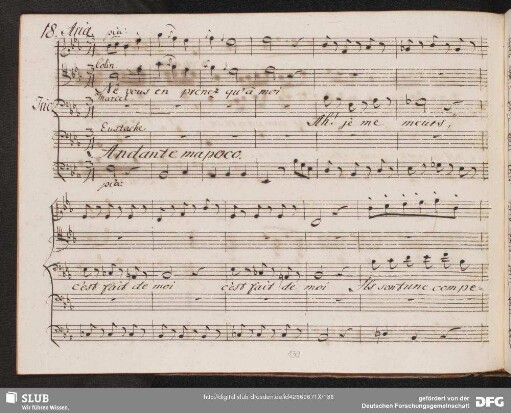 18. Aria
pia:
Colin
Ne vous en prenez qu'à moi
Marcel
Trio
Ah! je me meurs,
Eustache
Andante ma poco.
pia:
c'est fait de moi c'est fait de moi Ils sont une compe-
130
SLUB
Wir führen Wissen.
gefördert von der
Deutschen Forschungsgemeinschaft
DFG